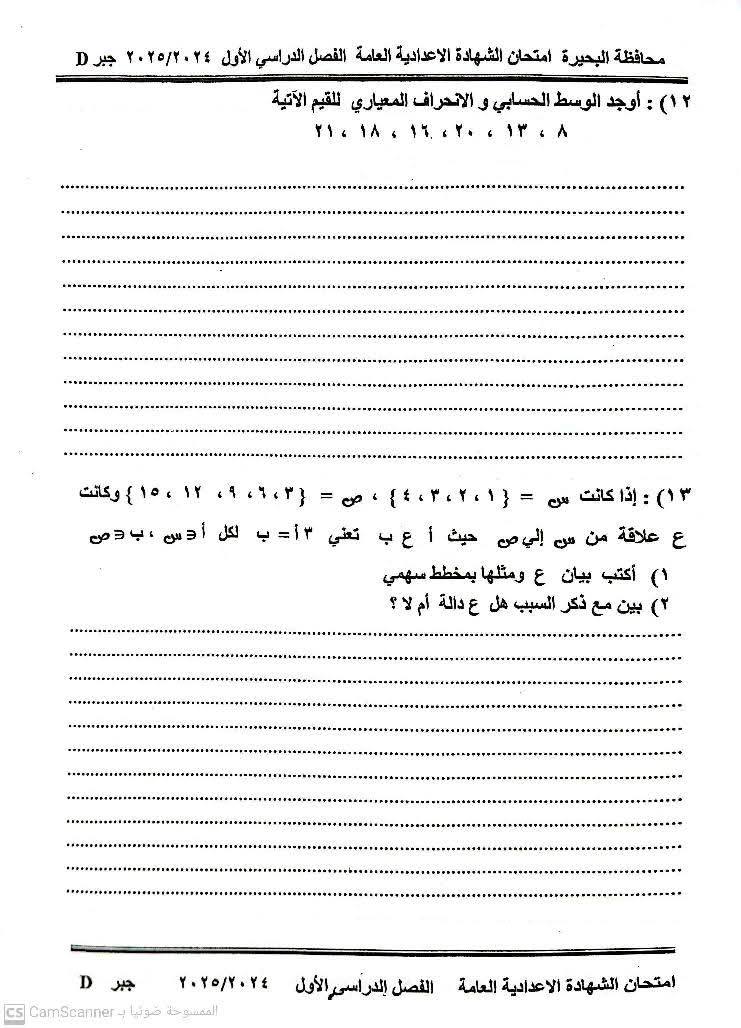 محافظة البحيرة امتحان الشهادة الاعدادية العامة الفصل الدراسي الأول ٢٠٢٥/٢٠٢٤ جبر D
١٢) : أوجد الوسط الحسابي و الانحراف المعياري للقيم الآتية
٨ ، ١٣ ، ٢٠ ، ١٦ ، ١٨ ، ٢١
١٣) : إذا كانت س = {١ ، ٢ ، ٣ ، ٤} ، ص = {٣ ، ٦ ، ٩ ، ١٢ ، ١٥} وكانت
ع علاقة من س إلي ص حيث أ ع ب تعني ٣أ = ب لكل أ ∈ س ، ب ∈ ص
١) أكتب بيان ع ومثلها بمخطط سهمي
٢) بين مع ذكر السبب هل ع دالة أم لا ؟
امتحان الشهادة الاعدادية العامة الفصل الدراسي الأول ٢٠٢٥/٢٠٢٤ جبر D
الممسوحة ضوئيا بـ CamScanner
CS